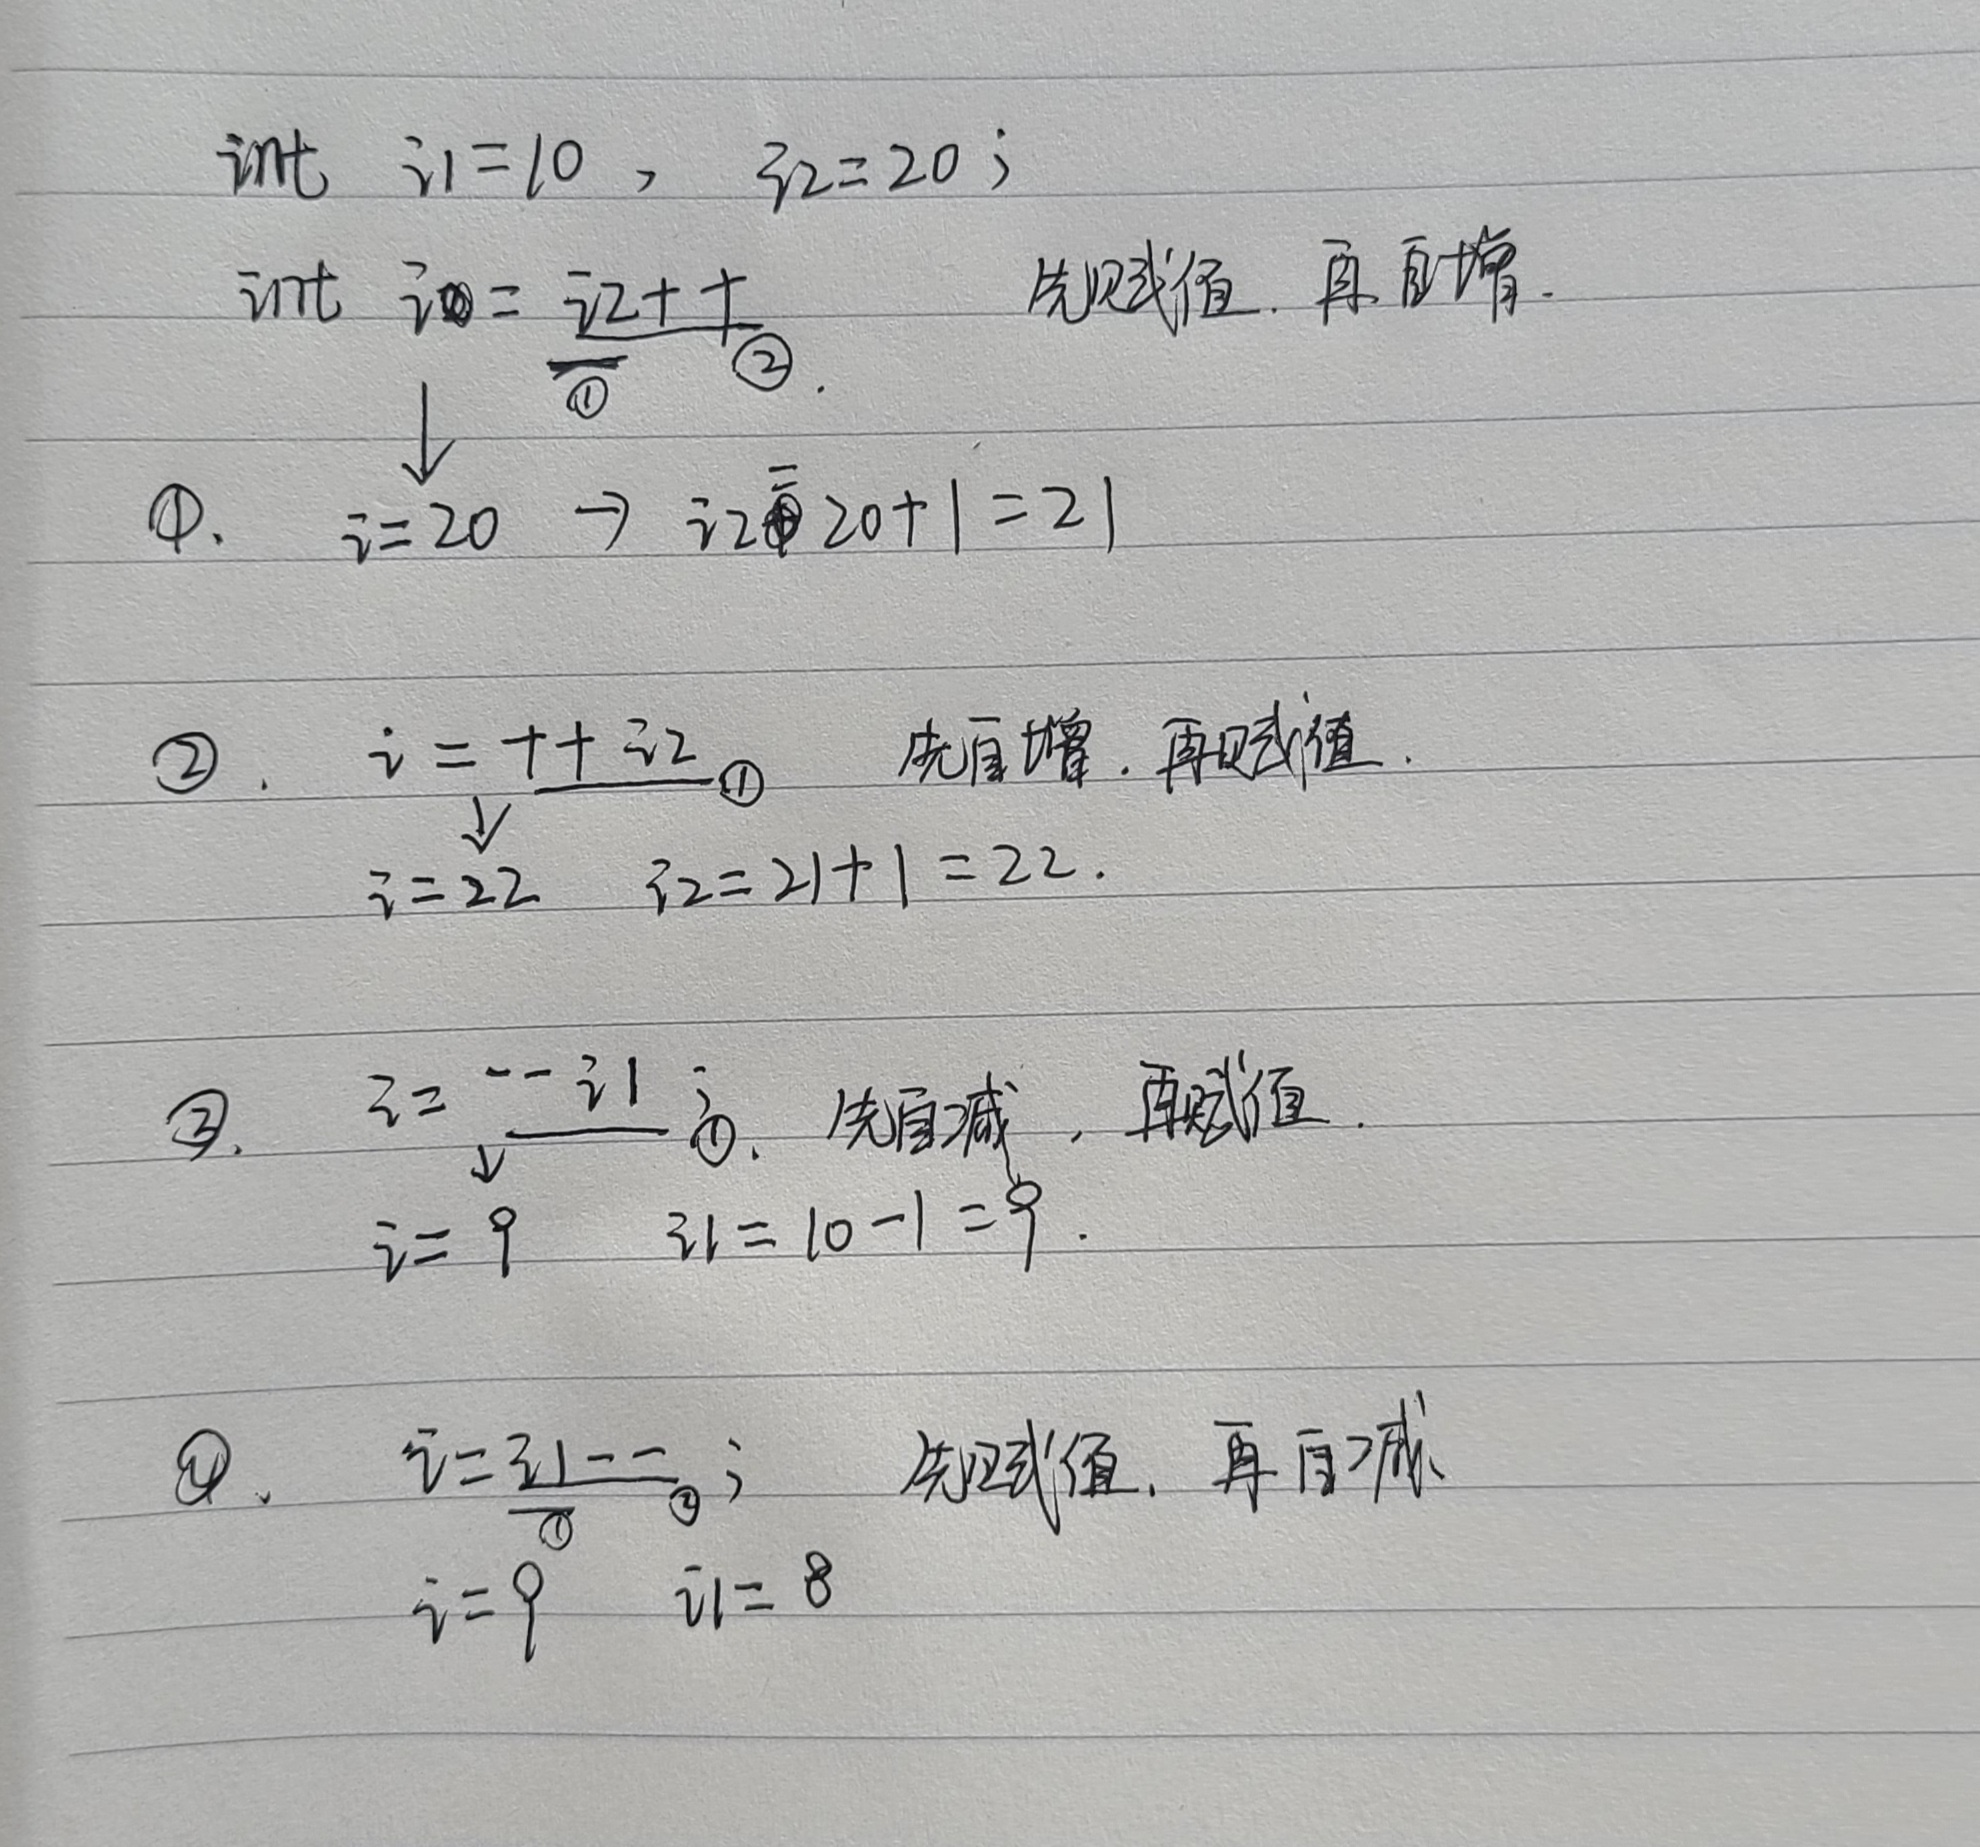 int i1=10, i2=20;
int i=i2++ 先赋值.再自增.
① ②.
①. i=20 → i2=20+1=21
②. i=++i2 ① 先自增.再赋值.
i=22 i2=21+1=22.
③. i=--i1; ①. 先自减,再赋值.
i=9 i1=10-1=9.
④. i=i1--; 先赋值.再自减、
① ②
i=9 i1=8